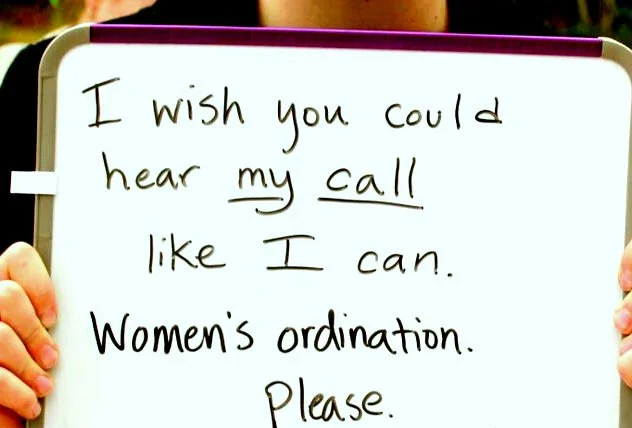 I wish you could
hear my call
like I can.
Women's ordination.
Please.